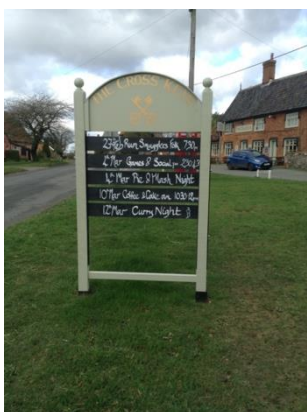 THE CROSS KEYS
23rd Feb Rum Smugglers folk 7.30pm
2nd Mar Games & Social pm 2.30
4th Mar Pie & Mash Night
10th Mar Coffee & Cake am 10.30-12pm
12th Mar Curry Night